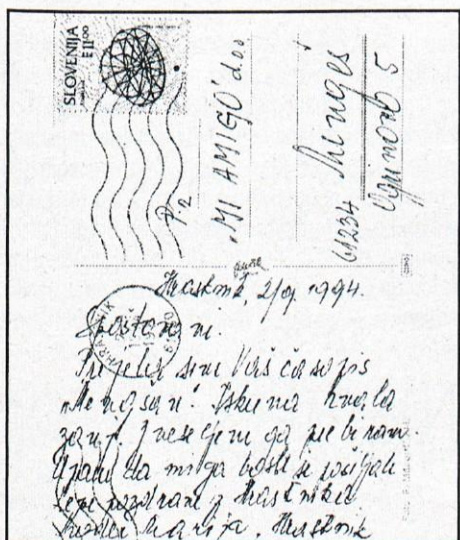 SLOVENIJA
11.00
P2
„MI AMIGO" d.o.o
61234 Mengeš
5
Hrastnik, 1994.
Spoštovani.
Prejela sem Vaš časopis
„Mengšan". Iskrena hvala
zanj. Z veseljem ga prebiram
Upam da mi ga boste še pošiljali
Lepi pozdravi z Hrastnika
Marija, Hrastnik